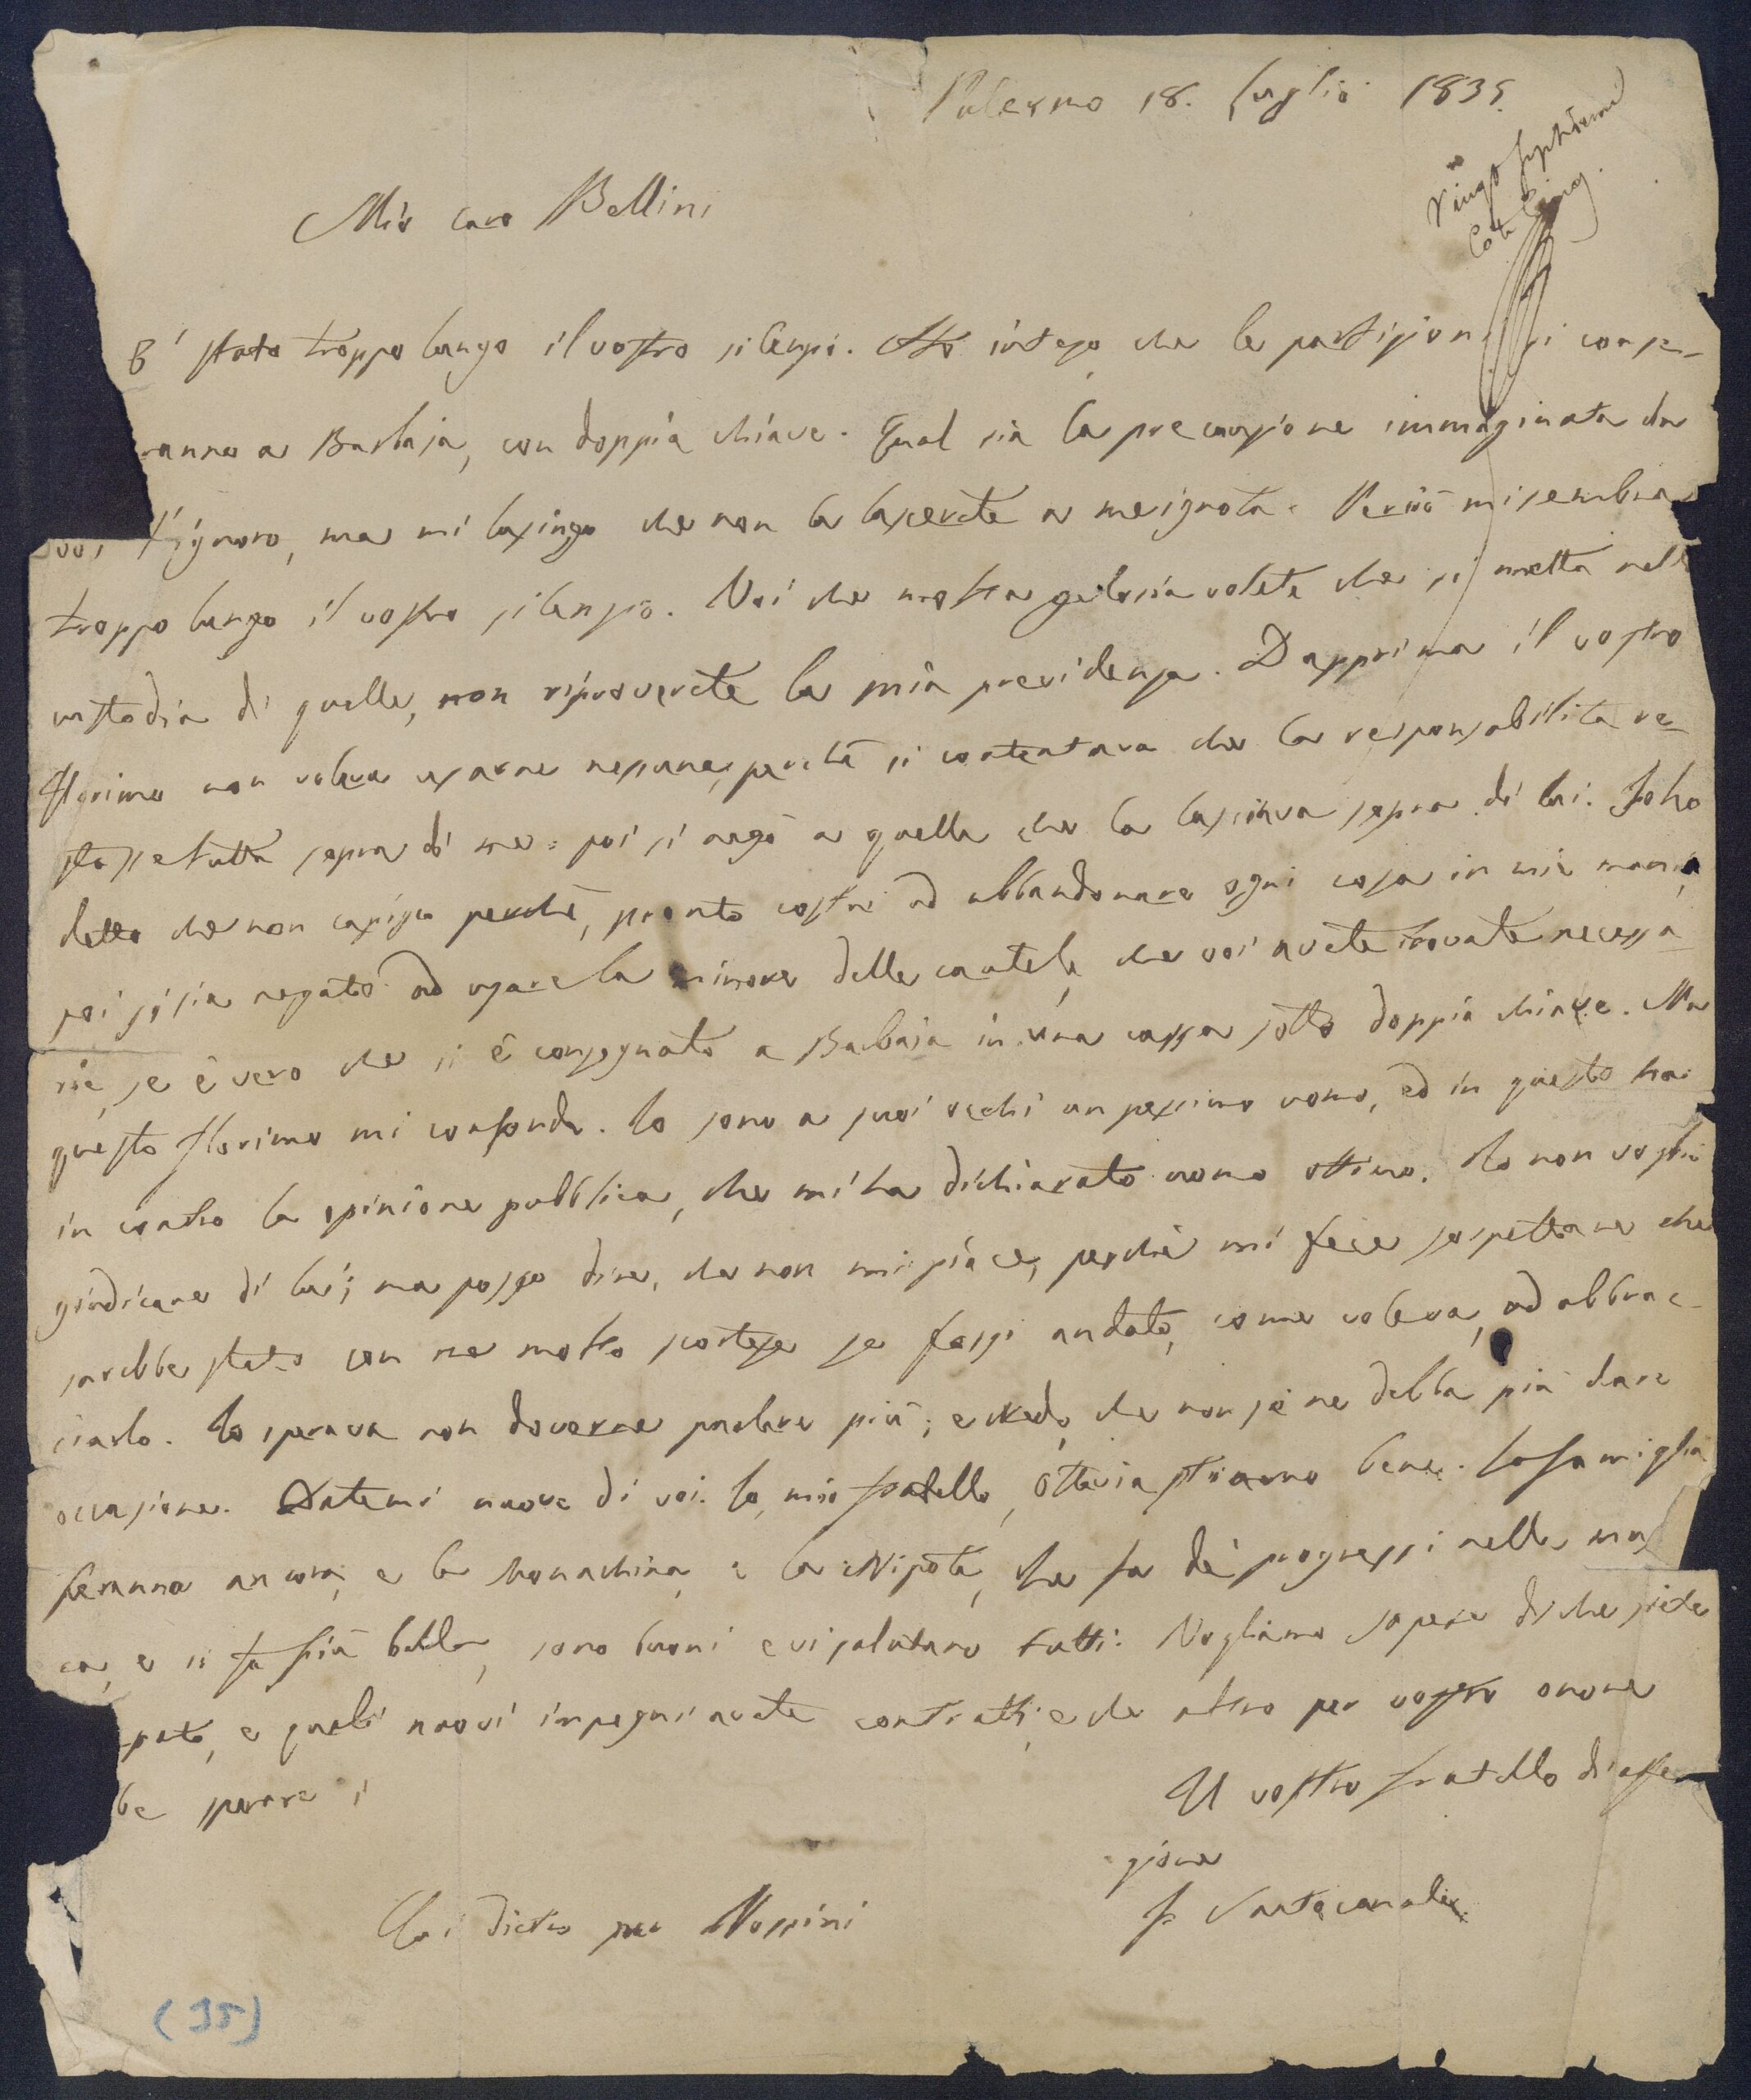 Palermo 18. Luglio 1835.
Mio caro Bellini
E' stato troppo lungo il vostro silenzio. Ho inteso, che le partizioni si conse-
ranno a Barbaja, con doppia chiave. Qual sia la precauzione immaginata da
voi l'ignoro, ma mi lusingo che non la lascerete a me ignota. Perciò mi sembra
troppo lungo il vostro silenzio. Voi che molta gelosia volete che si metta nell
custodia di quelle, non riproverete la mia previdenza. Dapprima il vostro
Florimo non voleva usarne nessuna, perchè si contentava che la responsabilità re-
stasse tutta sopra di me: poi si negò a quella che la lasciava sopra di lui. Io ho
detto che non capisco perchè, pronto costui ad abbandonare ogni cosa in mie mani,
poi si sia negato ad usare la minore delle cautele, che voi avete trovate necessa
rie, se è vero che si è consegnato a Barbaia in una cassa sotto doppia chiave. Ma
questo Florimo mi confonde. Io sono a suoi occhi un pessimo uomo, ed in questo ha
in contro la opinione pubblica, che mi ha dichiarato uomo ottimo. Io non voglio
giudicare di lui; ma posso dire, che non mi piace, perchè mi fece sospettare che
sarebbe stato con me molto scortese se fossi andato, come voleva, ad abbrac-
ciarlo. Io sperava non doverne parlare più; e credo, che non se ne debba più dare
occasione. Datemi nuove di voi. Io, mio fratello, Ottavia stiamo bene. La famiglia
Peranna ancora, e la Monachina, e la Nipote, che fa de' progressi nella mus
ca, e si fa più bella, sono buoni e vi salutano tutti. Vogliamo sapere di che siete
pato, e quali nuovi impegni avete contratti, e che altro per vostro onore
be sperare.
Il vostro fratello di affe-
zione
F Santocanale
(35)